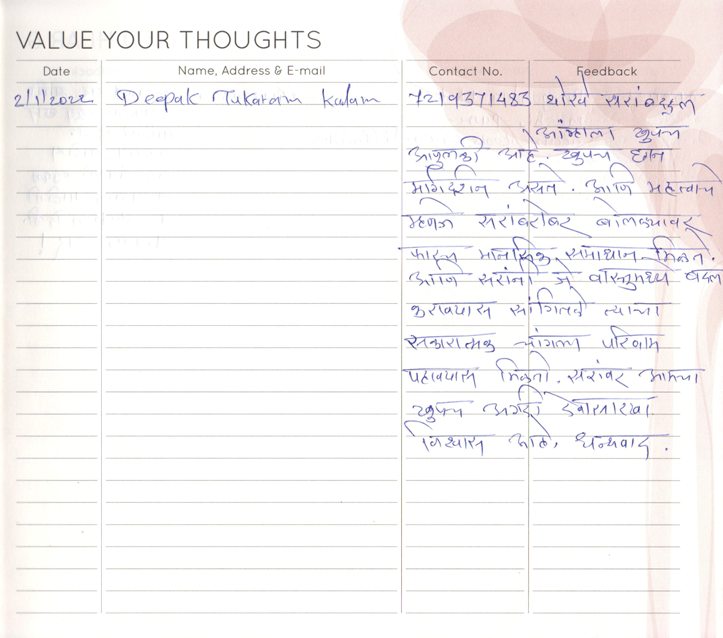 VALUE YOUR THOUGHTS
Date Name, Address & E-mail Contact No. Feedback
2/1/2022 Deepak Tukaram Kadam 7219371483 थोरवे सरांबद्दल
आम्हाला खुपच
आपुलकी आहे. खुपच छान
मार्गदर्शन असते. आणि महत्वाचे
म्हणजे सरांबरोबर बोलल्यावर
फारच मानसिक समाधान मिळते.
आणि सरांनी जे वास्तुमध्ये बदल
करावयास सांगितले त्याचा
सकारात्मक चांगला परिणाम
पहावयास मिळतो. सरांवर आमचा
खुपच अगदी देवासारखा
विश्वास आहे, धन्यवाद.